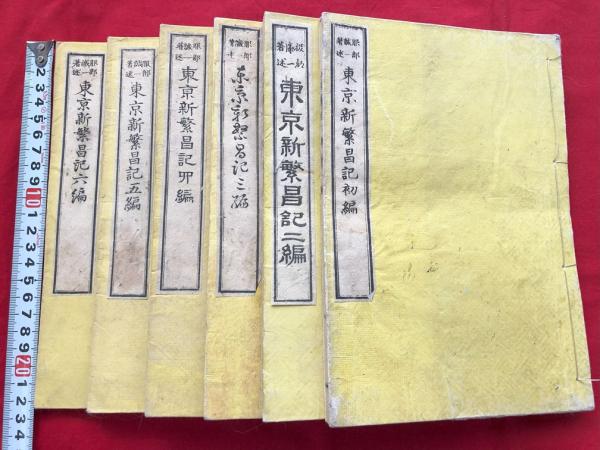 服部誠一著述
東京新繁昌記初編
服部誠一著述
東京新繁昌記二編
服部誠一著述
東京新繁昌記三編
服部誠一著述
東京新繁昌記四編
服部誠一著述
東京新繁昌記五編
服部誠一著述
東京新繁昌記六編
2 3 4 5 6 7 8 9 10 1 2 3 4 5 6 7 8 9 20 1 2 3